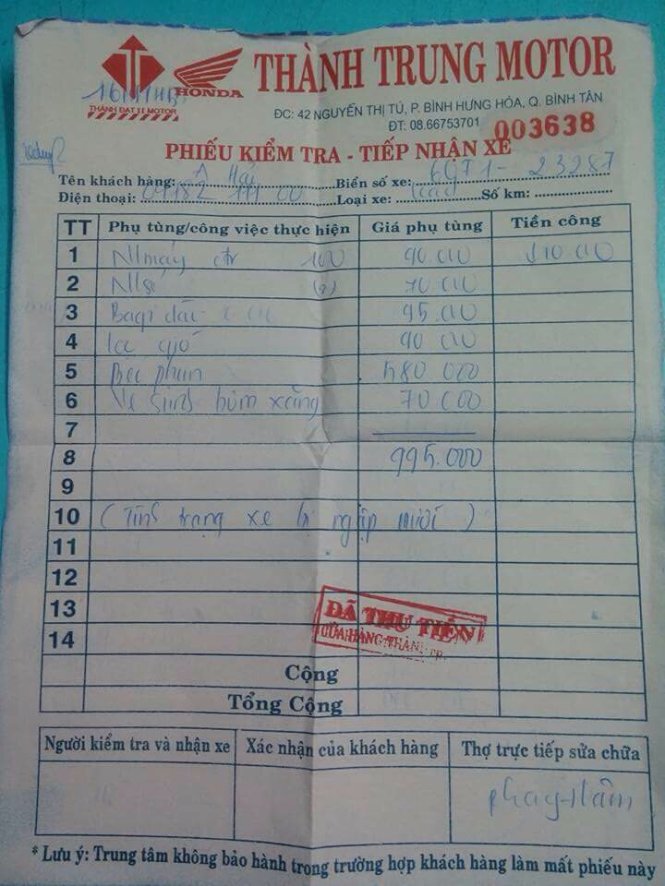 HONDA
THÀNH ĐẠT XE MOTOR
THÀNH TRUNG MOTOR
ĐC: 42 NGUYỄN THỊ TÚ, P. BÌNH HƯNG HÒA, Q. BÌNH TÂN
ĐT: 08.66753701
003638
PHIẾU KIỂM TRA - TIẾP NHẬN XE
Tên khách hàng: A Hải Biển số xe: 23287
Điện thoại: Loại xe: Số km:
TT Phụ tùng/công việc thực hiện Giá phụ tùng Tiền công
1 Nmáy 90.000
2 70.000
3 Baqi dài 95.000
4 lọc gió 90.000
5 Bec phun 580 000
6 Ve sinh bơm xăng 70.000
7
8 995.000
9
10 (Tình trạng xe bị ngập nước)
11
12
13
14
ĐÃ THU TIỀN
CỬA HÀNG THÀNH
Cộng
Tổng Cộng
Người kiểm tra và nhận xe Xác nhận của khách hàng Thợ trực tiếp sửa chữa
* Lưu ý: Trung tâm không bảo hành trong trường hợp khách hàng làm mất phiếu này